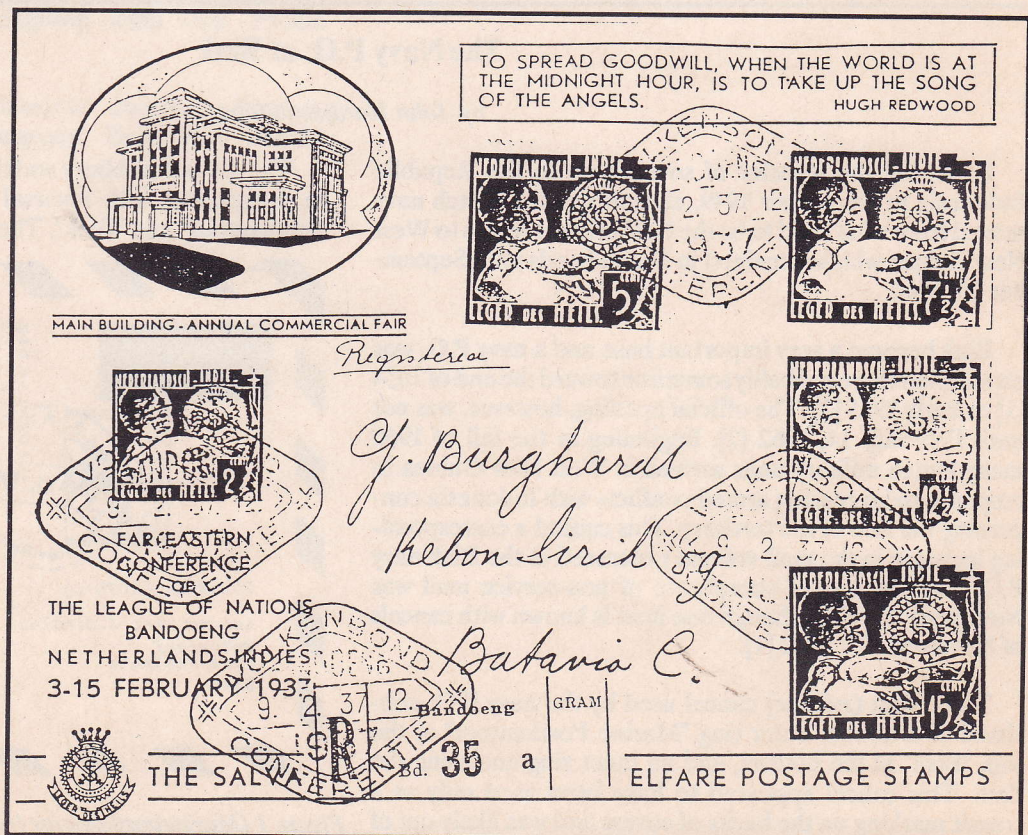 TO SPREAD GOODWILL, WHEN THE WORLD IS AT
THE MIDNIGHT HOUR, IS TO TAKE UP THE SONG
OF THE ANGELS.
HUGH REDWOOD
MAIN BUILDING - ANNUAL COMMERCIAL FAIR
NEDERLANDSCH INDIE
5 CENT
LEGER DES HEILS.
VOLKENBOND
9 2 37 12
1937
CONFERENTIE
NEDERLANDSCH INDIE
7½ CENT
LEGER DES HEILS.
Registered
NEDERLANDSCH INDIE
2
LEGER DES HEILS.
VOLKENBOND
CONFERENTIE
G. Burghardt
Kebon Sirih 59
Batavia C.
INDIE
12½
LEGER DES HEILS.
VOLKENBOND
9 2 37 12
CONFERENTIE
NEDERLANDSCH INDIE
15 CENT
LEGER DES HEILS.
FAR EASTERN
CONFERENCE
OF
THE LEAGUE OF NATIONS
BANDOENG
NETHERLANDS-INDIES
3-15 FEBRUARY 1937
VOLKENBOND
BANDOENG
9 2 37 12
CONFERENTIE
R
Bandoeng
Bd. 35 a
GRAM
LEGER DES HEILS
THE SALVA
ELFARE POSTAGE STAMPS